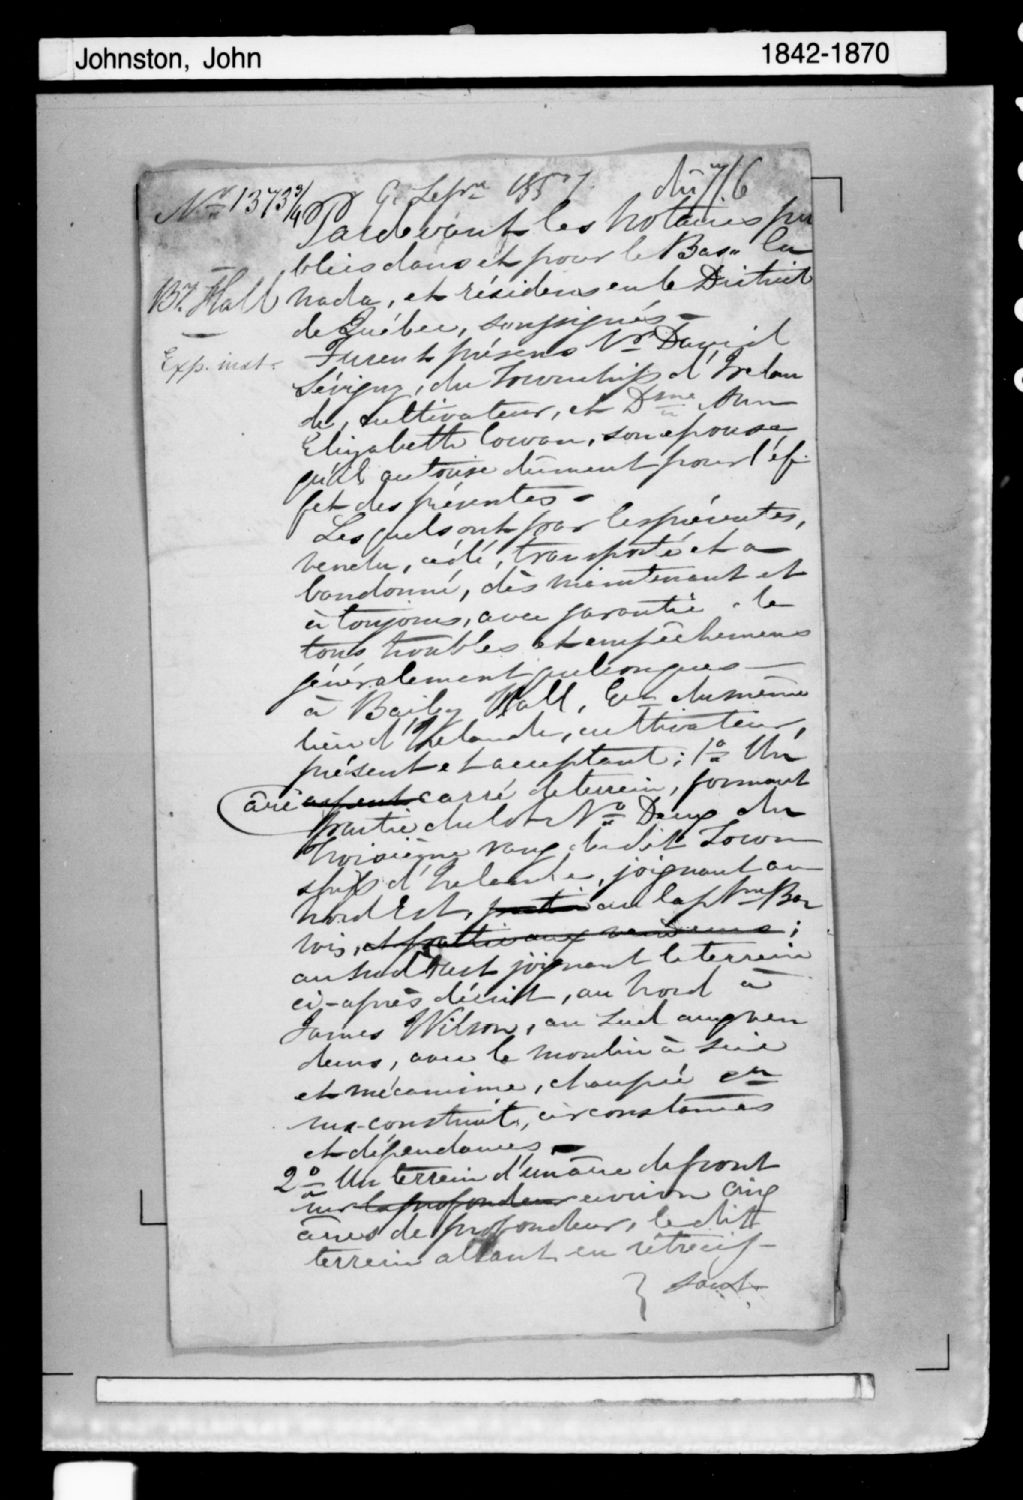 Johnston, John
1842-1870
No. 1373 3/4
9 Sepre 1857.
dû 7/6
Pardevant les Notaires pu
blics dans et pour le Bas-Ca
nada, et résidens en le District
de Québec, soussignés –
Bt. Hall
Exp. inst.
Furent présens Mr. David
Sévigny, du Township d'Irelan
de, cultivateur, et Dme Ann
Elizabeth Cowan, son épouse
qu'il autorise dûment pour l'éf-
fet des présentes –
Lesquels ont par les présentes,
vendu, cédé, transporté et a-
bandonné, dès maintenant et
à toujours, avec garantie de
tous troubles et empêchemens
généralement quelconques –
à Bailey Hall, Ecr. du même
lieu d'Irelande, cultivateur,
présent et acceptant; 1o. Un
âcre arpent carré de terrein, formant
partie du lot No. Deux du
troisième rang du dit Town
ship d'Irelande, joignant au
Nord Est, partie au Capt. Wm Bar
wis, et partie aux vendeurs;
au Sud Ouest joignant le terrein
ci-après décrit, au Nord à
James Wilson, au Sud aux ven
deurs, avec le moulin à scie
et mécanisme, chaussée en
sus construits, circonstances
et dépendances –
2o. Un terrein d'un âcre de front
sur la profondeur environ cinq
âcres de profondeur, le dit
terrein allant en rétrécis-
sant.